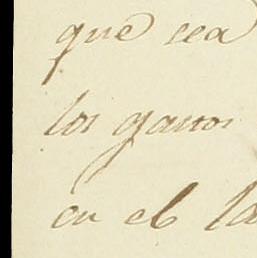 que sea
los gastos
en el la